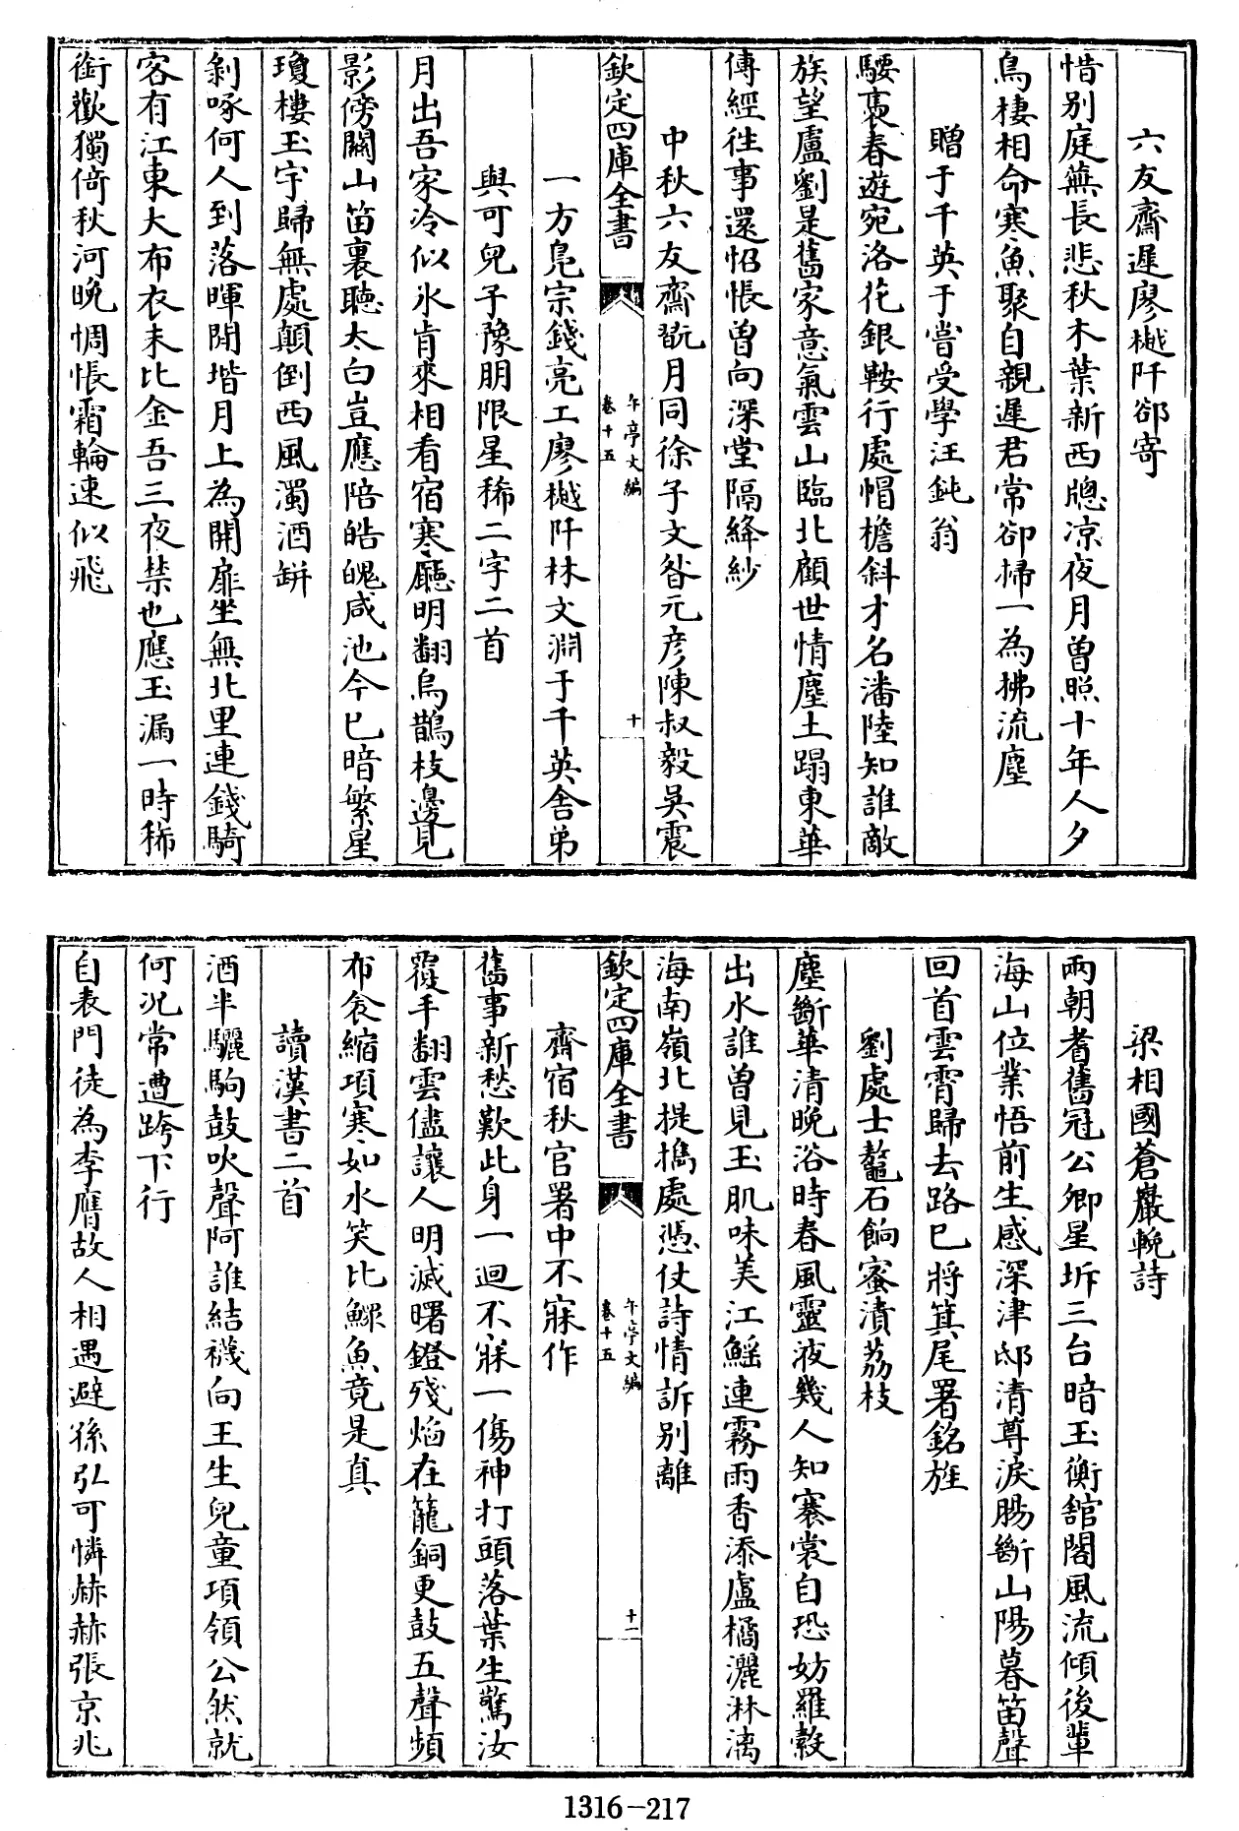 六友齋遲廖樾阡卻寄
惜别庭蕪長悲秋木葉新西牕凉夜月曾照十年人夕
鳥棲相命寒魚聚自親遲君常卻掃一為拂流塵
贈于千英于嘗受學汪鈍翁
騕褭春遊宛洛花銀鞍行處帽檐斜才名潘陸知誰敵
族望盧劉是舊家意氣雲山臨北顧世情塵土蹋東華
傳經往事還怊悵曾向深堂隔絳紗
中秋六友齋翫月同徐子文昝元彦陳叔毅吳震
欽定四庫全書
午亭文編
卷十五
十
一方凫宗錢亮工廖樾阡林文淵于千英舍弟
與可兒子豫朋限星稀二字二首
月出吾家冷似氷肯來相看宿寒廳明翻烏鵲枝邊見
影傍關山笛裏聽太白豈應陪皓魄咸池今已暗繁星
瓊樓玉宇歸無處顛倒西風濁酒缾
剝啄何人到落暉閒堦月上為開扉坐無北里連錢騎
客有江東大布衣未比金吾三夜禁也應玉漏一時稀
銜歡獨倚秋河晩惆悵霜輪速似飛
梁相國蒼巖輓詩
兩朝耆舊冠公卿星坼三台暗玉衡館閣風流傾後輩
海山位業悟前生感深津邸清尊淚腸斷山陽暮笛聲
回首雲霄歸去路已將箕尾署銘旌
劉處士鼇石餉蜜漬荔枝
塵斷華清晩浴時春風靈液幾人知褰裳自恐妨羅縠
出水誰曾見玉肌味美江鰩連霧雨香添盧橘灑淋漓
海南嶺北提攜處憑仗詩情訴别離
欽定四庫全書
午亭文編
卷十五
十一
齋宿秋官署中不寐作
舊事新愁歎此身一迴不寐一傷神打頭落葉生驚汝
覆手翻雲儘讓人明滅曙鐙殘焰在籠銅更鼓五聲頻
布衾縮項寒如水笑比鰥魚竟是真
讀漢書二首
酒半驪駒鼓吹聲阿誰結襪向王生兒童項領公然就
何况常遭跨下行
自表門徒為李膺故人相遇避孫弘可憐赫赫張京兆
1316-217